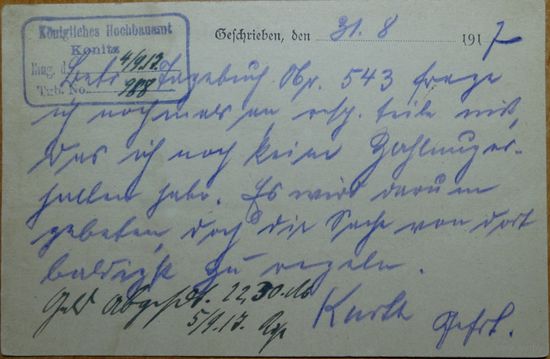 Königliches Hochbauamt
Konitz
Eing. d. 4/9.17
Tgb. No. 988
Geschrieben, den 31. 8 1917
Betr. Tagebuch Nr. 543 frage
ich nochmals an resp. teile mit,
das ich noch keine Zahlung er-
halten habe. Es wird darum
gebeten, doch die Sache von dort
baldigst zu regeln.
Geld abgesdt. 22,30 M
5/9.17.
Gefr.